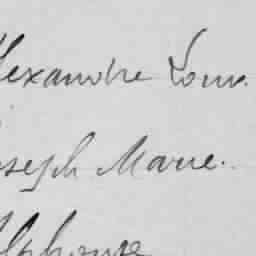 lexandre Louis
oseph Marie.
lphonse